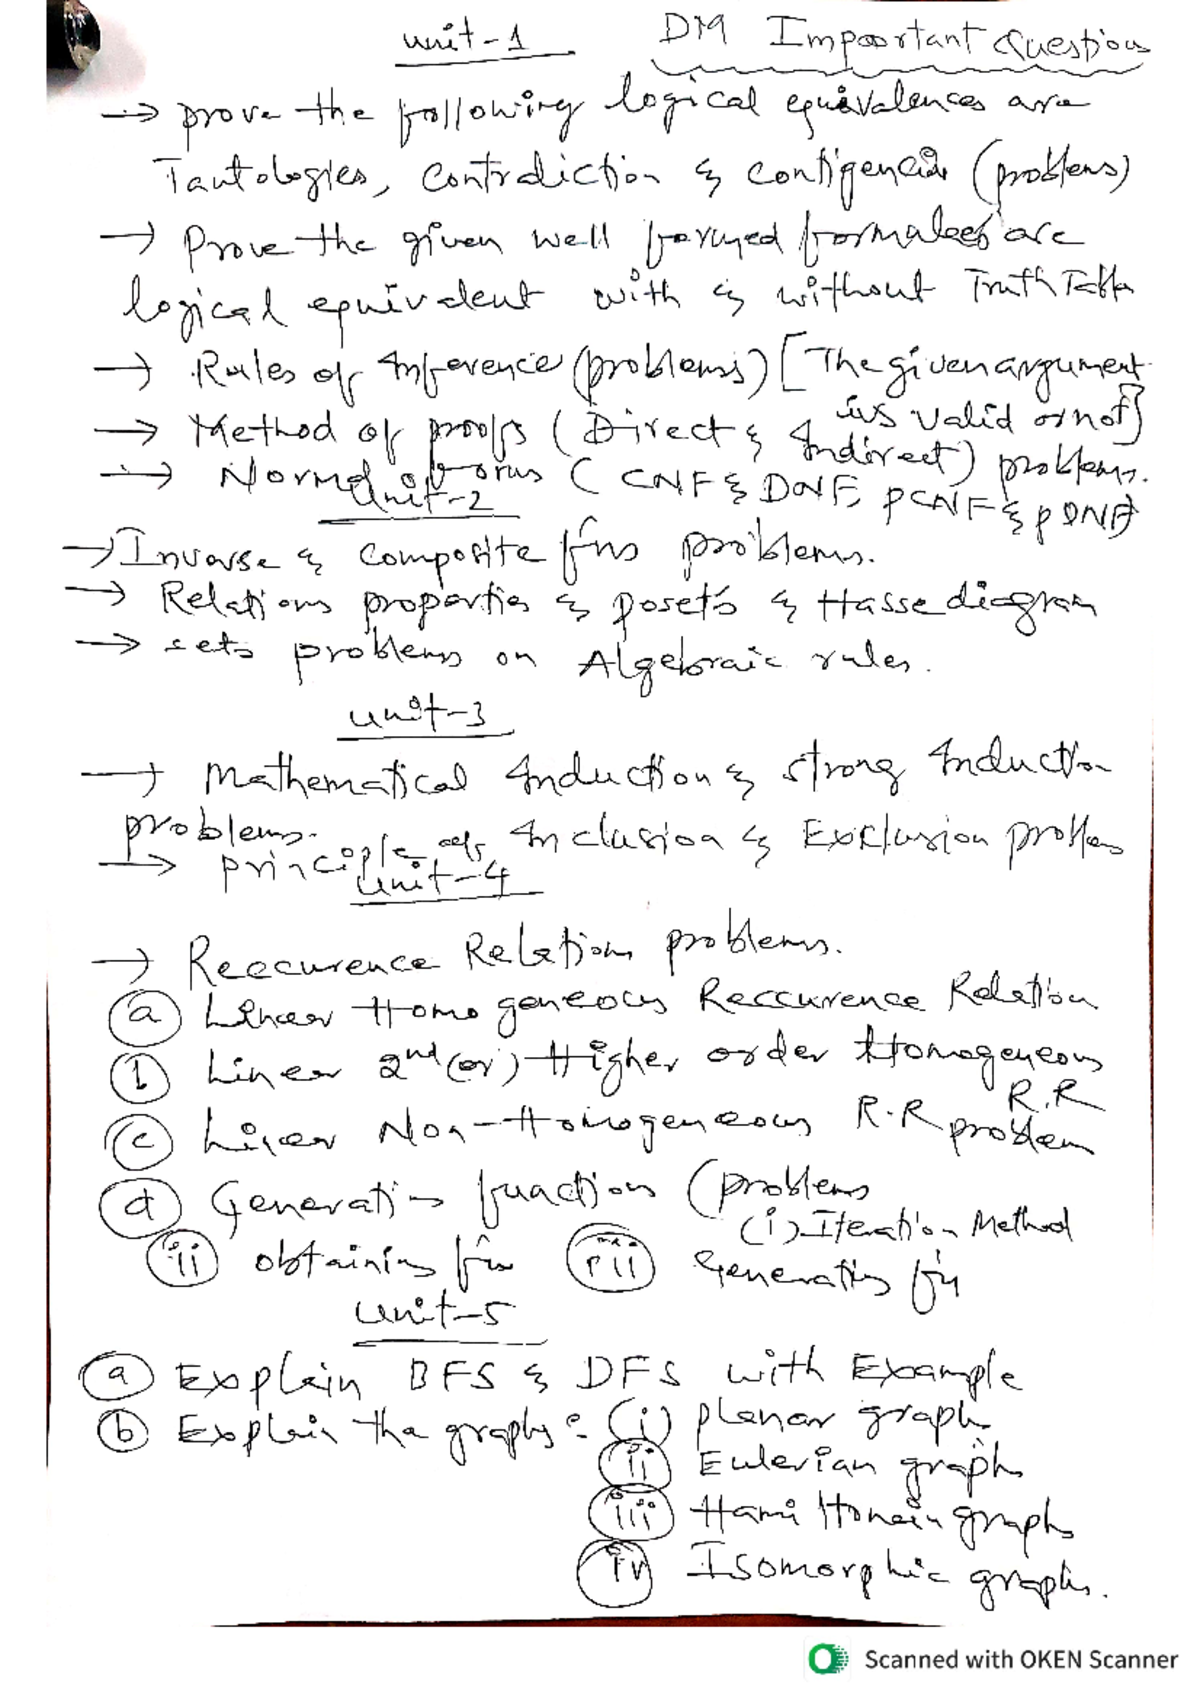 unit-1 DM Important Questions
→ prove the following logical equivalences are
Tautologies, Contradiction & Contigencies (problems)
→ Prove the given well formed formulaes are
logical equivalent with & without Truth Table
→ Rules of Inference (problems) [The given argument
is valid or not]
→ Method of proofs (Direct & Indirect) problems.
→ Normal forms (CNF & DNF, PCNF & PDNF)
Unit-2
→ Inverse & composite fns problems.
→ Relations properties & posets & Hasse diagram
→ sets problems on Algebraic rules.
unit-3
→ Mathematical Induction & strong Induction
problems.
→ principle of Inclusion & Exclusion problems
Unit-4
→ Reccurence Relation problems.
(a) Linear Homogeneous Reccurence Relation
Linear 2nd (or) Higher order Homogeneous
R.R
(c) Linear Non-Homogeneous R.R problem
(d) Generating function (problems
(i) Iteration Method
(ii) obtaining fn (iii) Generating fn
unit-5
(a) Explain BFS & DFS with Example
(b) Explain the graphs: (i) planar graph
(ii) Eulerian graph
(iii) Hamiltonein graph
(iv) Isomorphic graphs.
Scanned with OKEN Scanner